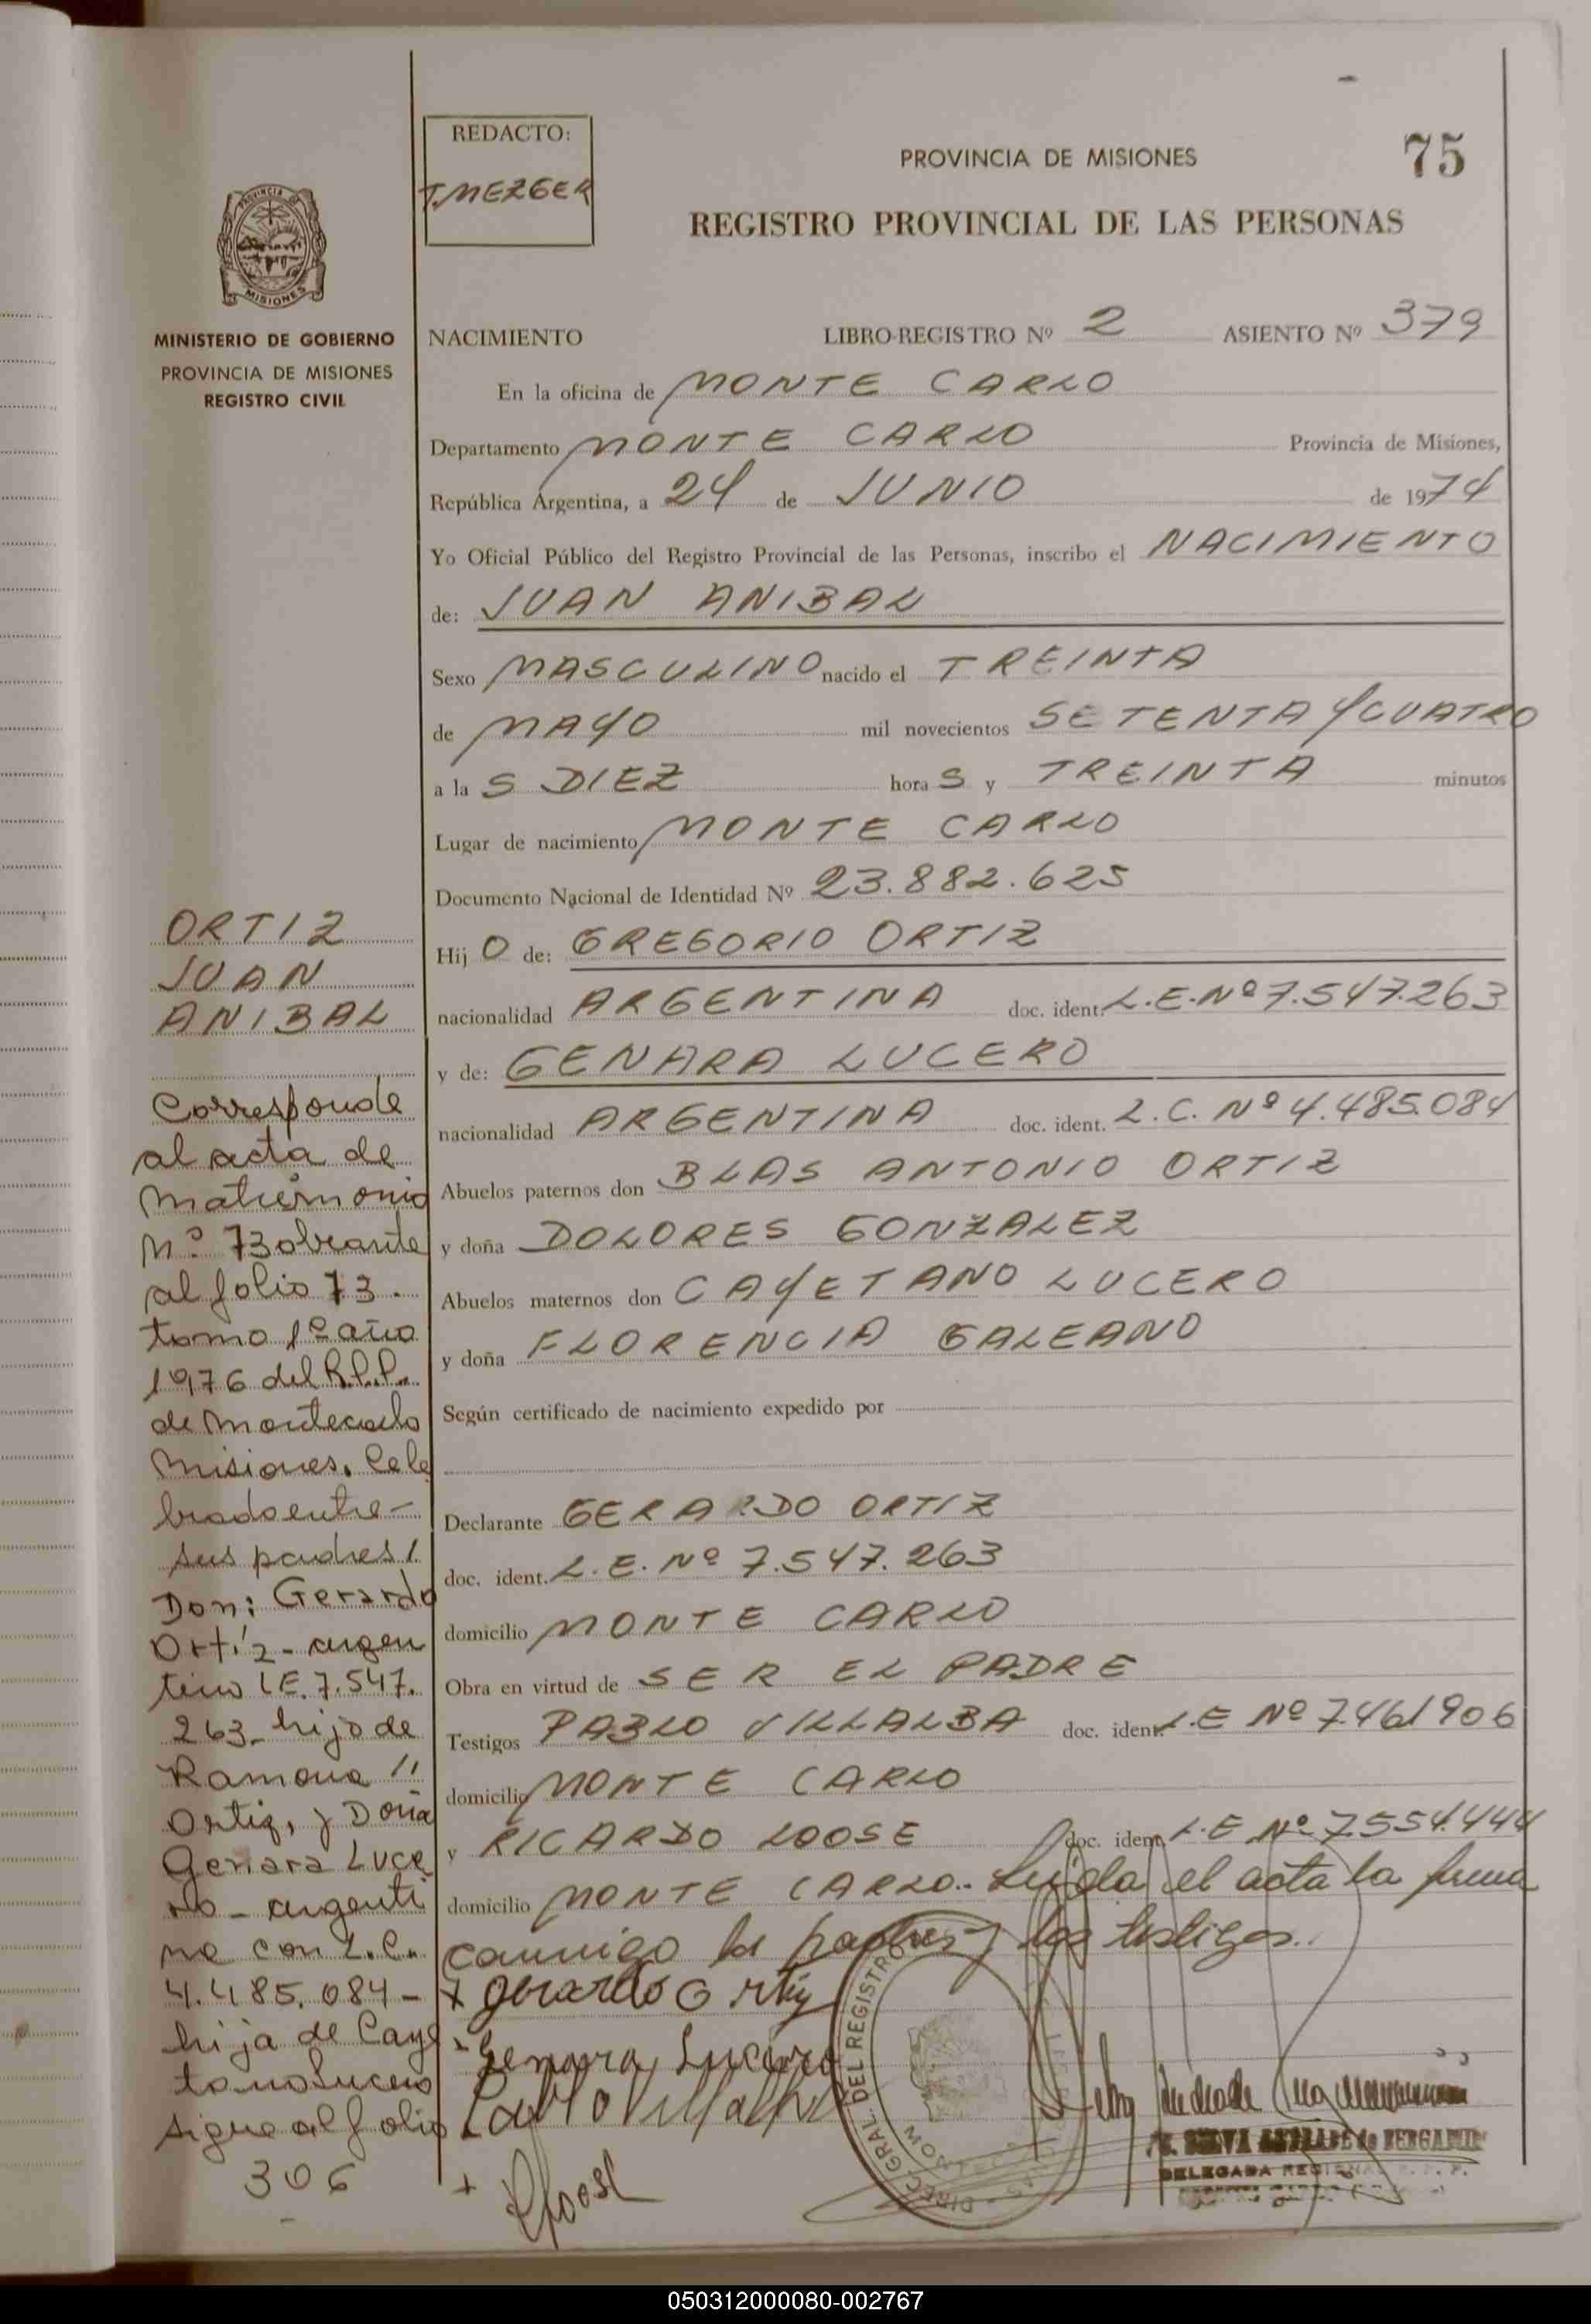 REDACTO:
T. MEZGER
PROVINCIA DE MISIONES
75
REGISTRO PROVINCIAL DE LAS PERSONAS
PROVINCIA
MISIONES
MINISTERIO DE GOBIERNO
PROVINCIA DE MISIONES
REGISTRO CIVIL
NACIMIENTO LIBRO-REGISTRO Nº 2 ASIENTO Nº 379
En la oficina de MONTE CARLO
Departamento MONTE CARLO Provincia de Misiones,
República Argentina, a 24 de JUNIO de 1974
Yo Oficial Público del Registro Provincial de las Personas, inscribo el NACIMIENTO
de: JUAN ANIBAL
Sexo MASCULINO nacido el TREINTA
de MAYO mil novecientos SETENTA Y CUATRO
a la S DIEZ hora S y TREINTA minutos
Lugar de nacimiento MONTE CARLO
Documento Nacional de Identidad Nº 23.882.625
Hij O de: GREGORIO ORTIZ
nacionalidad ARGENTINA doc. ident. L.E.Nº 7.547.263
y de: GENARA LUCERO
nacionalidad ARGENTINA doc. ident. L.C. Nº 4.485.084
Abuelos paternos don BLAS ANTONIO ORTIZ
y doña DOLORES GONZALEZ
Abuelos maternos don CAYETANO LUCERO
y doña FLORENCIA GALEANO
Según certificado de nacimiento expedido por
Declarante GERARDO ORTIZ
doc. ident. L.E. Nº 7.547.263
domicilio MONTE CARLO
Obra en virtud de SER EL PADRE
Testigos PABLO VILLALBA doc. ident. L.E Nº 7.461906
domicilio MONTE CARLO
y RICARDO LOOSE doc. ident. L.E Nº 7554.444
domicilio MONTE CARLO.- Leída el acta la firma
conmigo los padres y los testigos.
Gerardo Ortiz
Genara Lucero
Pablo Villalba
RLoose
DIREC. GRAL. DEL REGISTRO
DELEGADA REGIONAL
ORTIZ
JUAN
ANIBAL
Corresponde
al acta de
matrimonio
Nº 73 obrante
al folio 73.
tomo 1º año
1976 del R.P.P.
de Montecarlo
Misiones. Cele
brado entre-
sus padres!
Don: Gerardo
Ortíz - argen
tino LE. 7.547.
263- hijo de
Ramona
Ortiz, y Doña
Genara Luce
ro - argenti
na con L.C.
4.485.084 -
hija de Caye
tano Lucero
sigue al folio
306
050312000080-002767